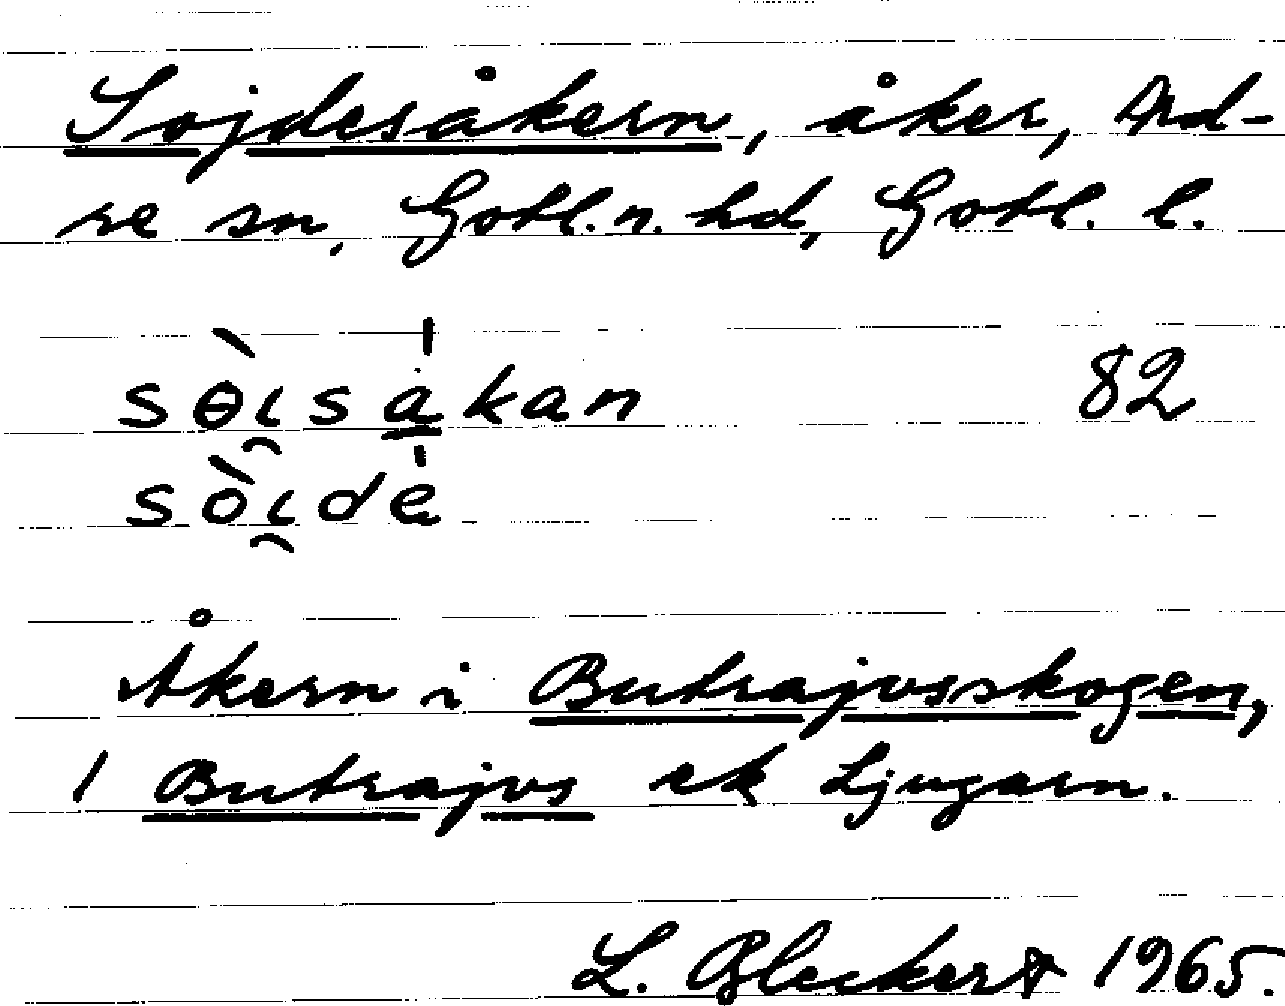 Sojdesåkern, åker, Ard-
re sn, Gotl.n. hd, Gotl. l.
sɵ̀ɩ̯sa̍kan 82
sòɩ̯de̍
Åkern i Butrajvsskogen,
1 Butrajvs ek Ljugarn.
L. Bleckert 1965.